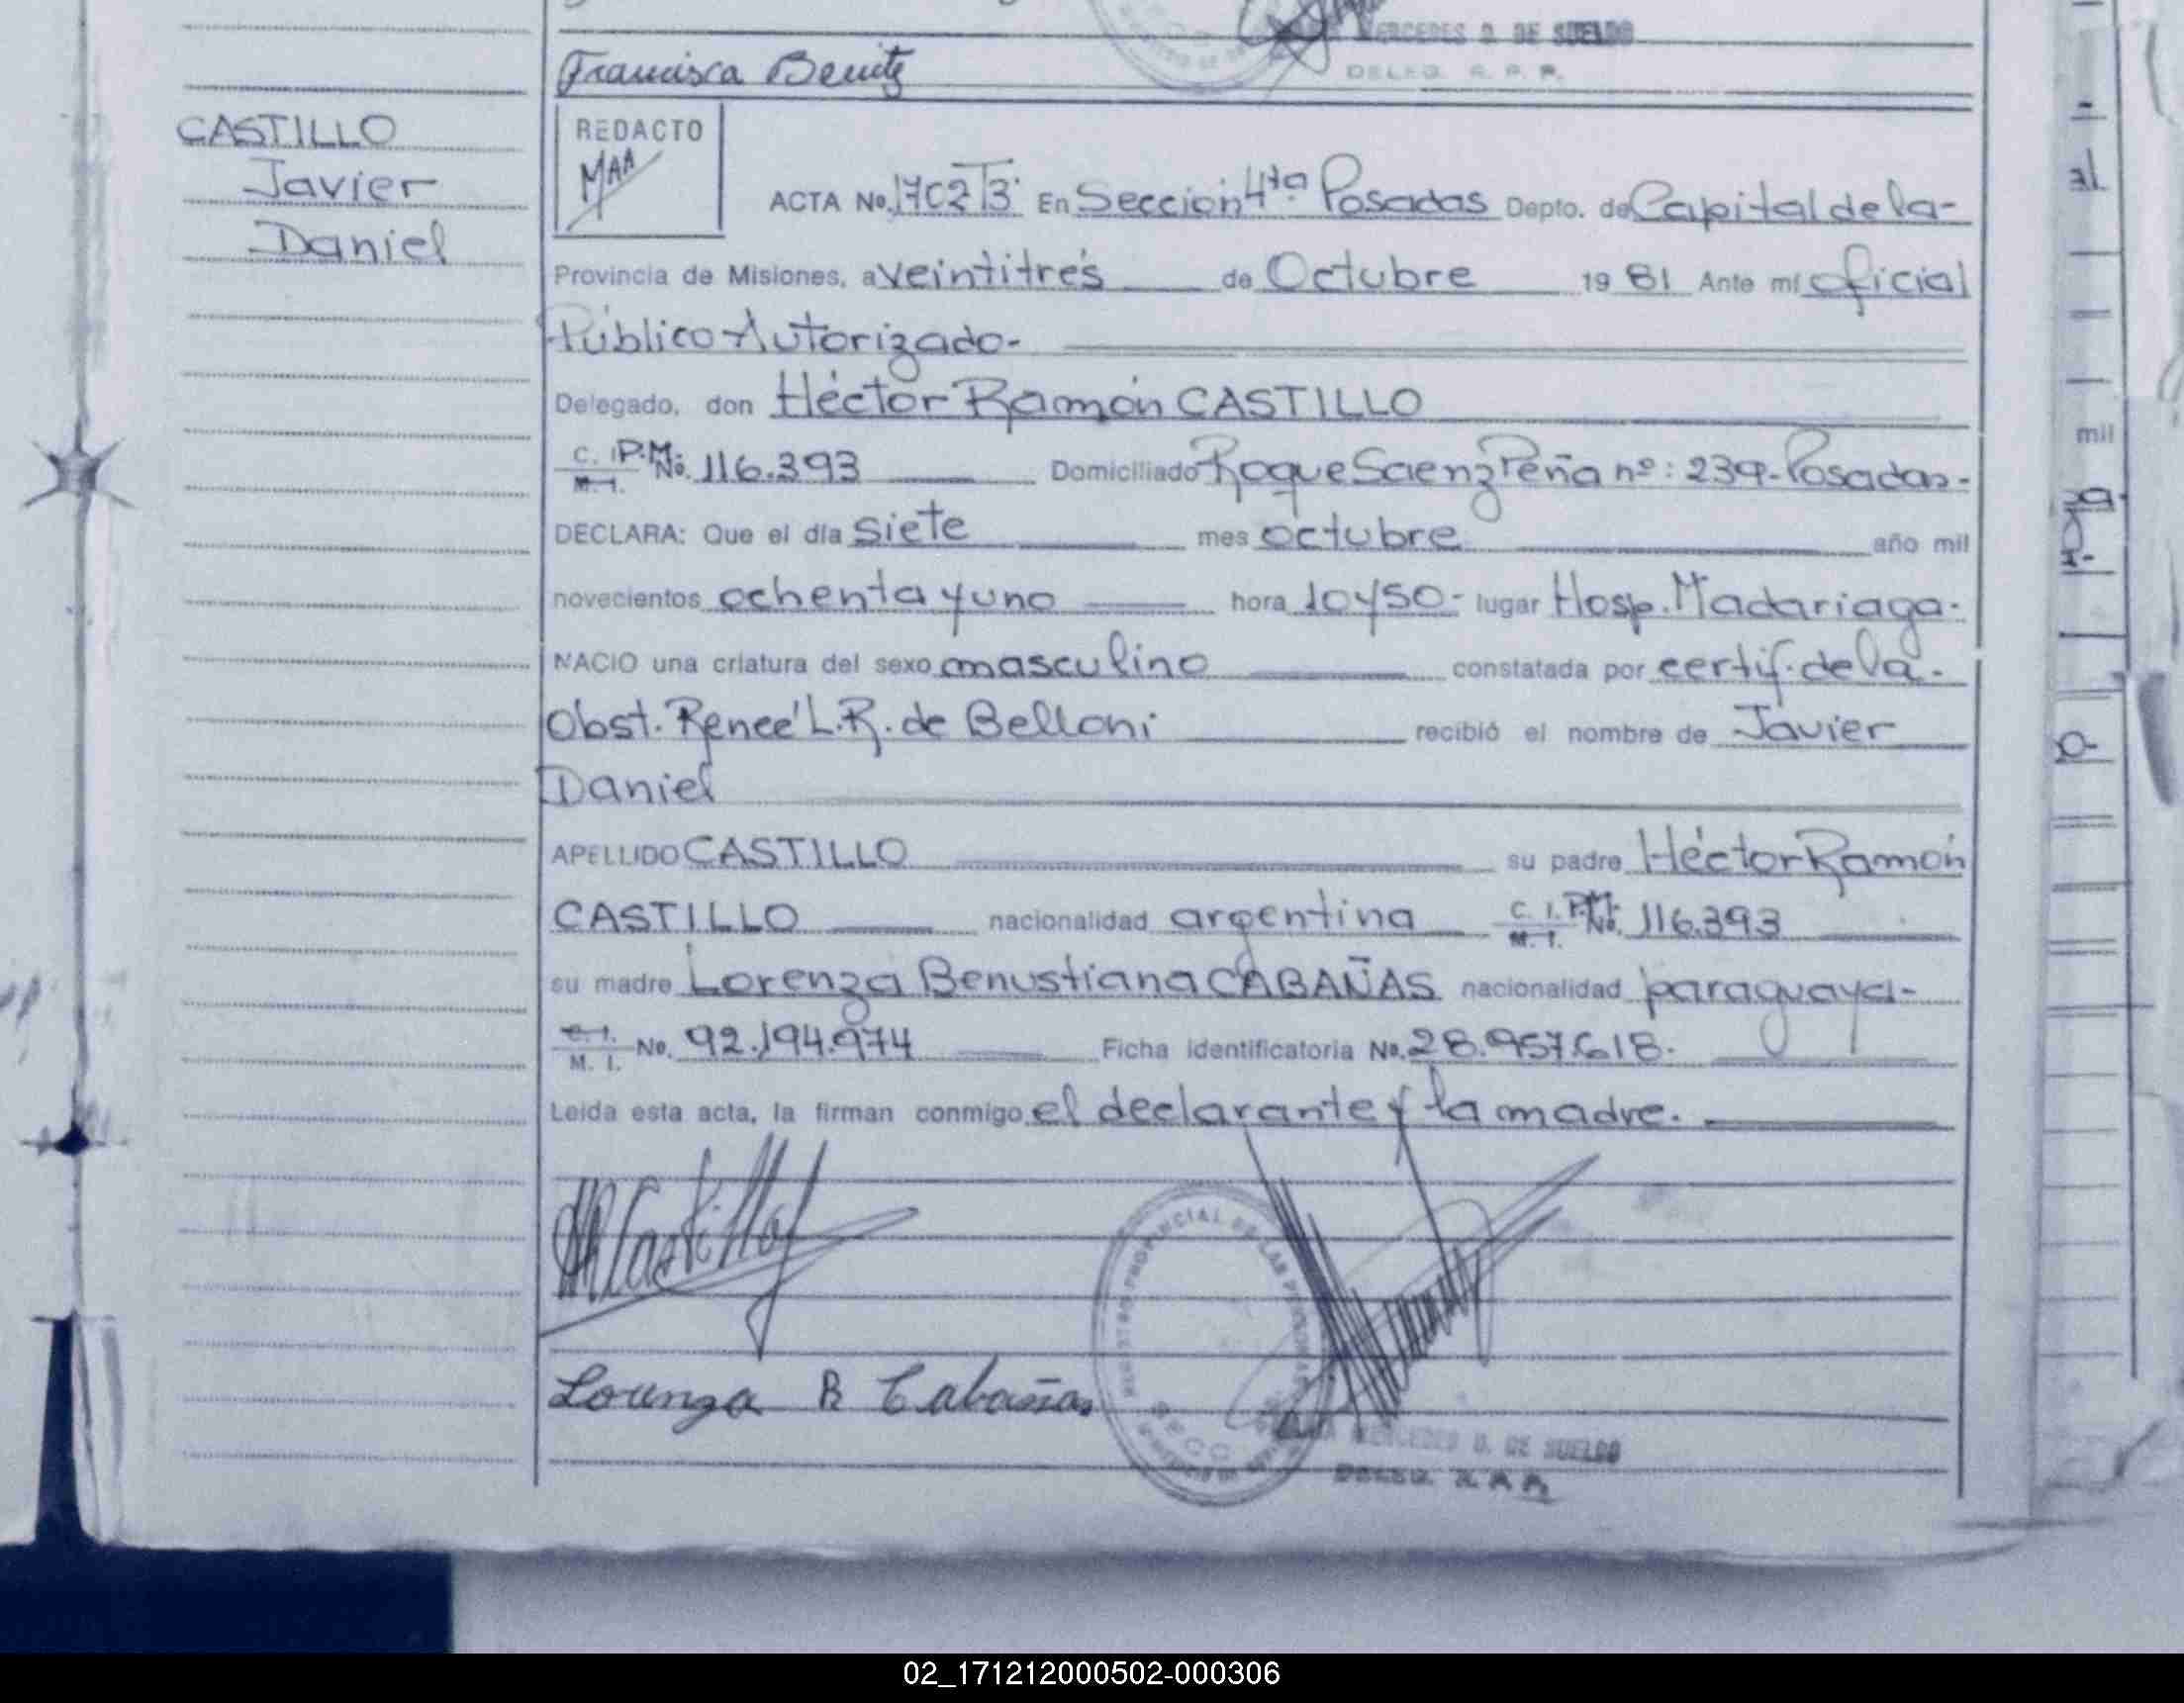 MERCEDES D. DE SUELDO
Francisca Benitz
DELEG. R. P. P.
CASTILLO
Javier
Daniel
REDACTO
MAA
ACTA No. 1702 T3 En Sección 4ta Posadas Depto. de Capital de la-
Provincia de Misiones, a veintitrés de Octubre 19 81 Ante mí oficial
Público Autorizado-
Delegado, don Héctor Ramón CASTILLO
C. I. P.M. No. 116.393 Domiciliado Roque Saenz Peña nº: 239-Posadas-
M. I.
DECLARA: Que el día siete mes octubre año mil
novecientos ochenta y uno hora 10 y 50- lugar Hosp. Madariaga-
NACIO una criatura del sexo masculino constatada por certif. de la-
Obst. Reneé L.R. de Belloni recibió el nombre de Javier
Daniel
APELLIDO CASTILLO su padre Héctor Ramón
CASTILLO nacionalidad argentina C. I. P.M. No. 116.393
M. I.
su madre Lorenza Benustiana CABAÑAS nacionalidad paraguaya-
C. I. No. 92.194.974 Ficha identificatoria No. 28.957.618.
M. I.
Leída esta acta, la firman conmigo el declarante y la madre.
HRCastillo
Lorenza B Cabañas
REGISTRO PROVINCIAL DE LAS PERSONAS
MERCEDES D. DE SUELDO
DELEG. R. P. P.
mil
02_171212000502-000306